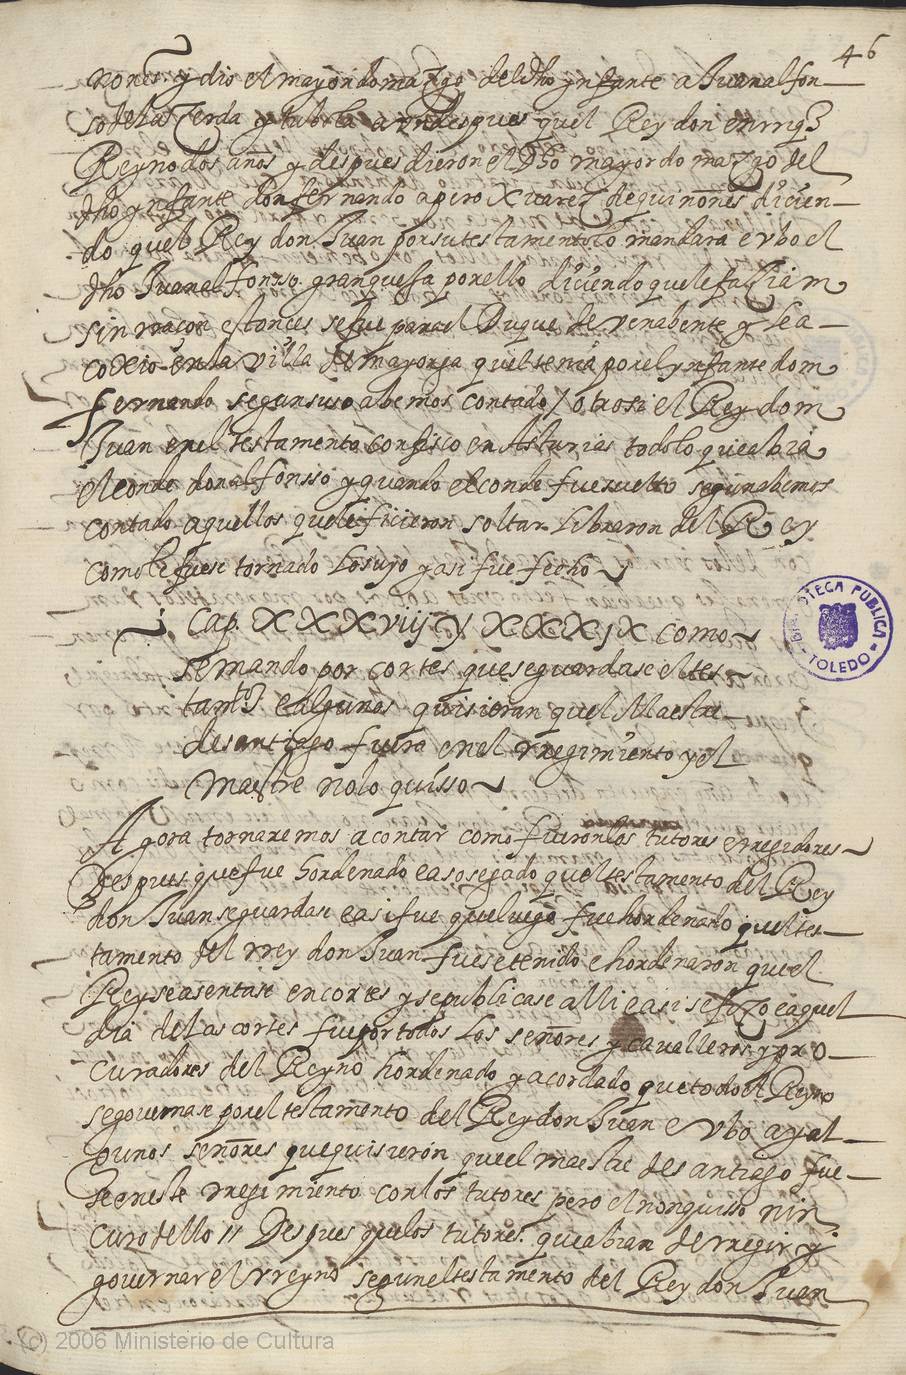 46
nones y dio el mayordomazgo del dho ynfante a Juan alfon
so de la zerda y tubola a un despues quel Rey don enrriq3
Reyno dos años y despues dieron el dho mayordomazgo del
dho ynfante don fernando a pero xuarez de quiñones diçien
do quel Rey don Juan por su testamento lo mandara e vbo el
dho Juan alfonsso gran quexa por ello diciendo que le faziam
sin raçon estonces se fue para el Duque de venabente y se a
coxio en la villa de mayorga quel tenia por el ynfante dom
fernando segun suso abemos contado / otrosi el Rey dom
Juan en el testamento confisco en Asturias todo lo que abia
el conde don alfonsso y quando el conde fue suelto segun abemos
contado aquellos que le ficieron soltar libraron del Rey
como le fuese tornado lo suyo y asi fue fecho
Cap. XXXviij y XXXIX como
se mando por cortes que se guardase el tes
tamto e algunos quisieran quel Maestre
de santiago fuera en el rregimiento y el
maestre no lo quisso
Agora tornaremos a contar como fueron los tutores e rregidores
Despues que fue hordenado e asosegado quel testamento del Rey
don Juan se guardase e asi fue que luego fue hordenado quel tes
tamento del rrey don Juan fuese tenido e hordenaron que el
Rey se asentase en cortes y se publicase alli e asi se fizo e aquel
dia de las cortes fue por todos los señores y cavalleros y pro
curadores del Reyno hordenado y acordado que todo el Reyno
se governase por el testamento del Rey don Juan e vbo ay al
gunos señores que quisieron que el maestre de santiago fue
se en este rregimiento con los tutores pero el non quisso nin
curo dello // Despues que los tutores que abian de rregir y
governar el rreyno segun el testamento del Rey don Juan
BIBLIOTECA PUBLICA
TOLEDO
(c) 2006 Ministerio de Cultura